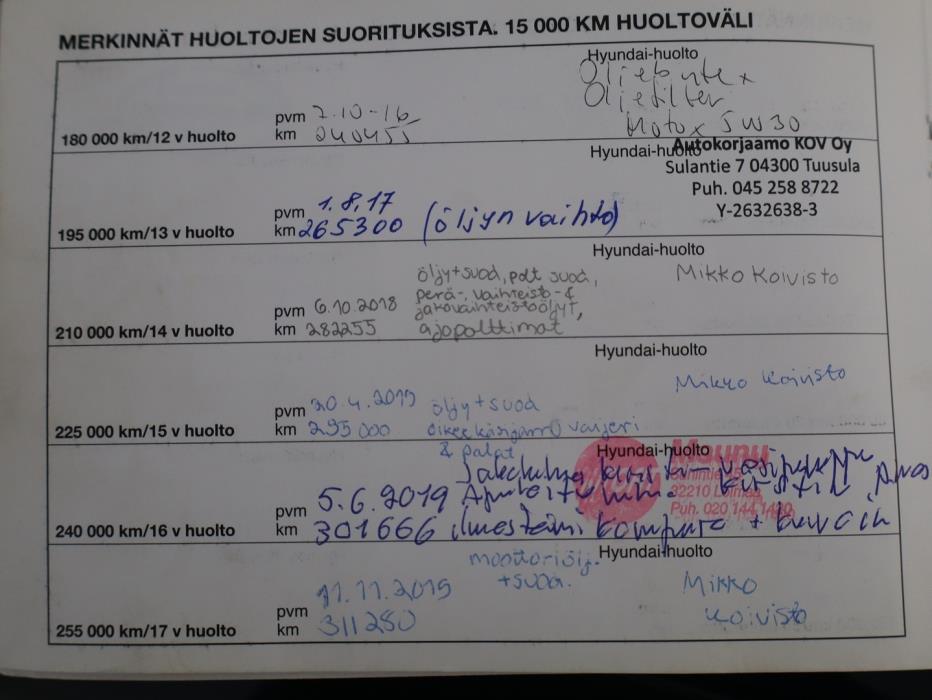 MERKINNÄT HUOLTOJEN SUORITUKSISTA. 15 000 KM HUOLTOVÄLI
Hyundai-huolto
Oljebyte x
Oljefilter
Motox 5W30
pvm 2.10-16
180 000 km/12 v huolto km 240455
Hyundai-huolto
Autokorjaamo KOV Oy
Sulantie 7 04300 Tuusula
Puh. 045 258 8722
Y-2632638-3
pvm 1.8.17
195 000 km/13 v huolto km 265300 (öljyn vaihto)
Hyundai-huolto
öljy+suod, polt suod,
perä-, vaihteisto- &
jakovaihteistoöljyt,
ajopolttimat
Mikko Koivisto
pvm 6.10.2018
210 000 km/14 v huolto km 282255
Hyundai-huolto
Mikko Koivisto
pvm 20.4.2019 öljy+suod
225 000 km/15 v huolto km 295000 oikee käsijarru vaijeri
& palat
Hyundai-huolto
32210
Puh. 020 144
pvm 5.6.2019
240 000 km/16 v huolto km 301666
Hyundai-huolto
moottoriölj.
+suod.
Mikko
Koivisto
pvm 11.11.2019
255 000 km/17 v huolto km 311250